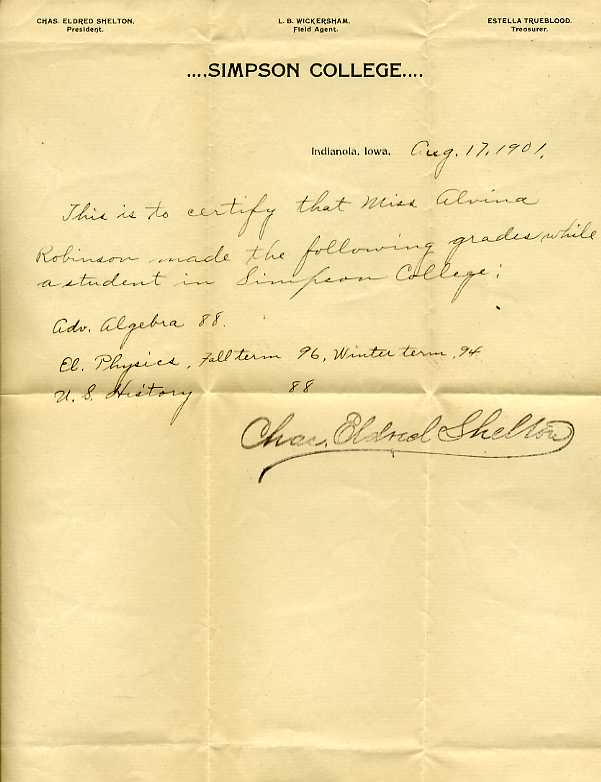 CHAS. ELDRED SHELTON.
President.
L. B. WICKERSHAM.
Field Agent.
ESTELLA TRUEBLOOD.
Treasurer.
....SIMPSON COLLEGE....
Indianola, Iowa, Aug. 17, 1901.
This is to certify that Miss Alvina
Robinson made the following grades while
a student in Simpson College;
Adv. Algebra 88.
El. Physics, Fall term 96, Winter term, 94
U. S. History 88
Chas. Eldred Shelton